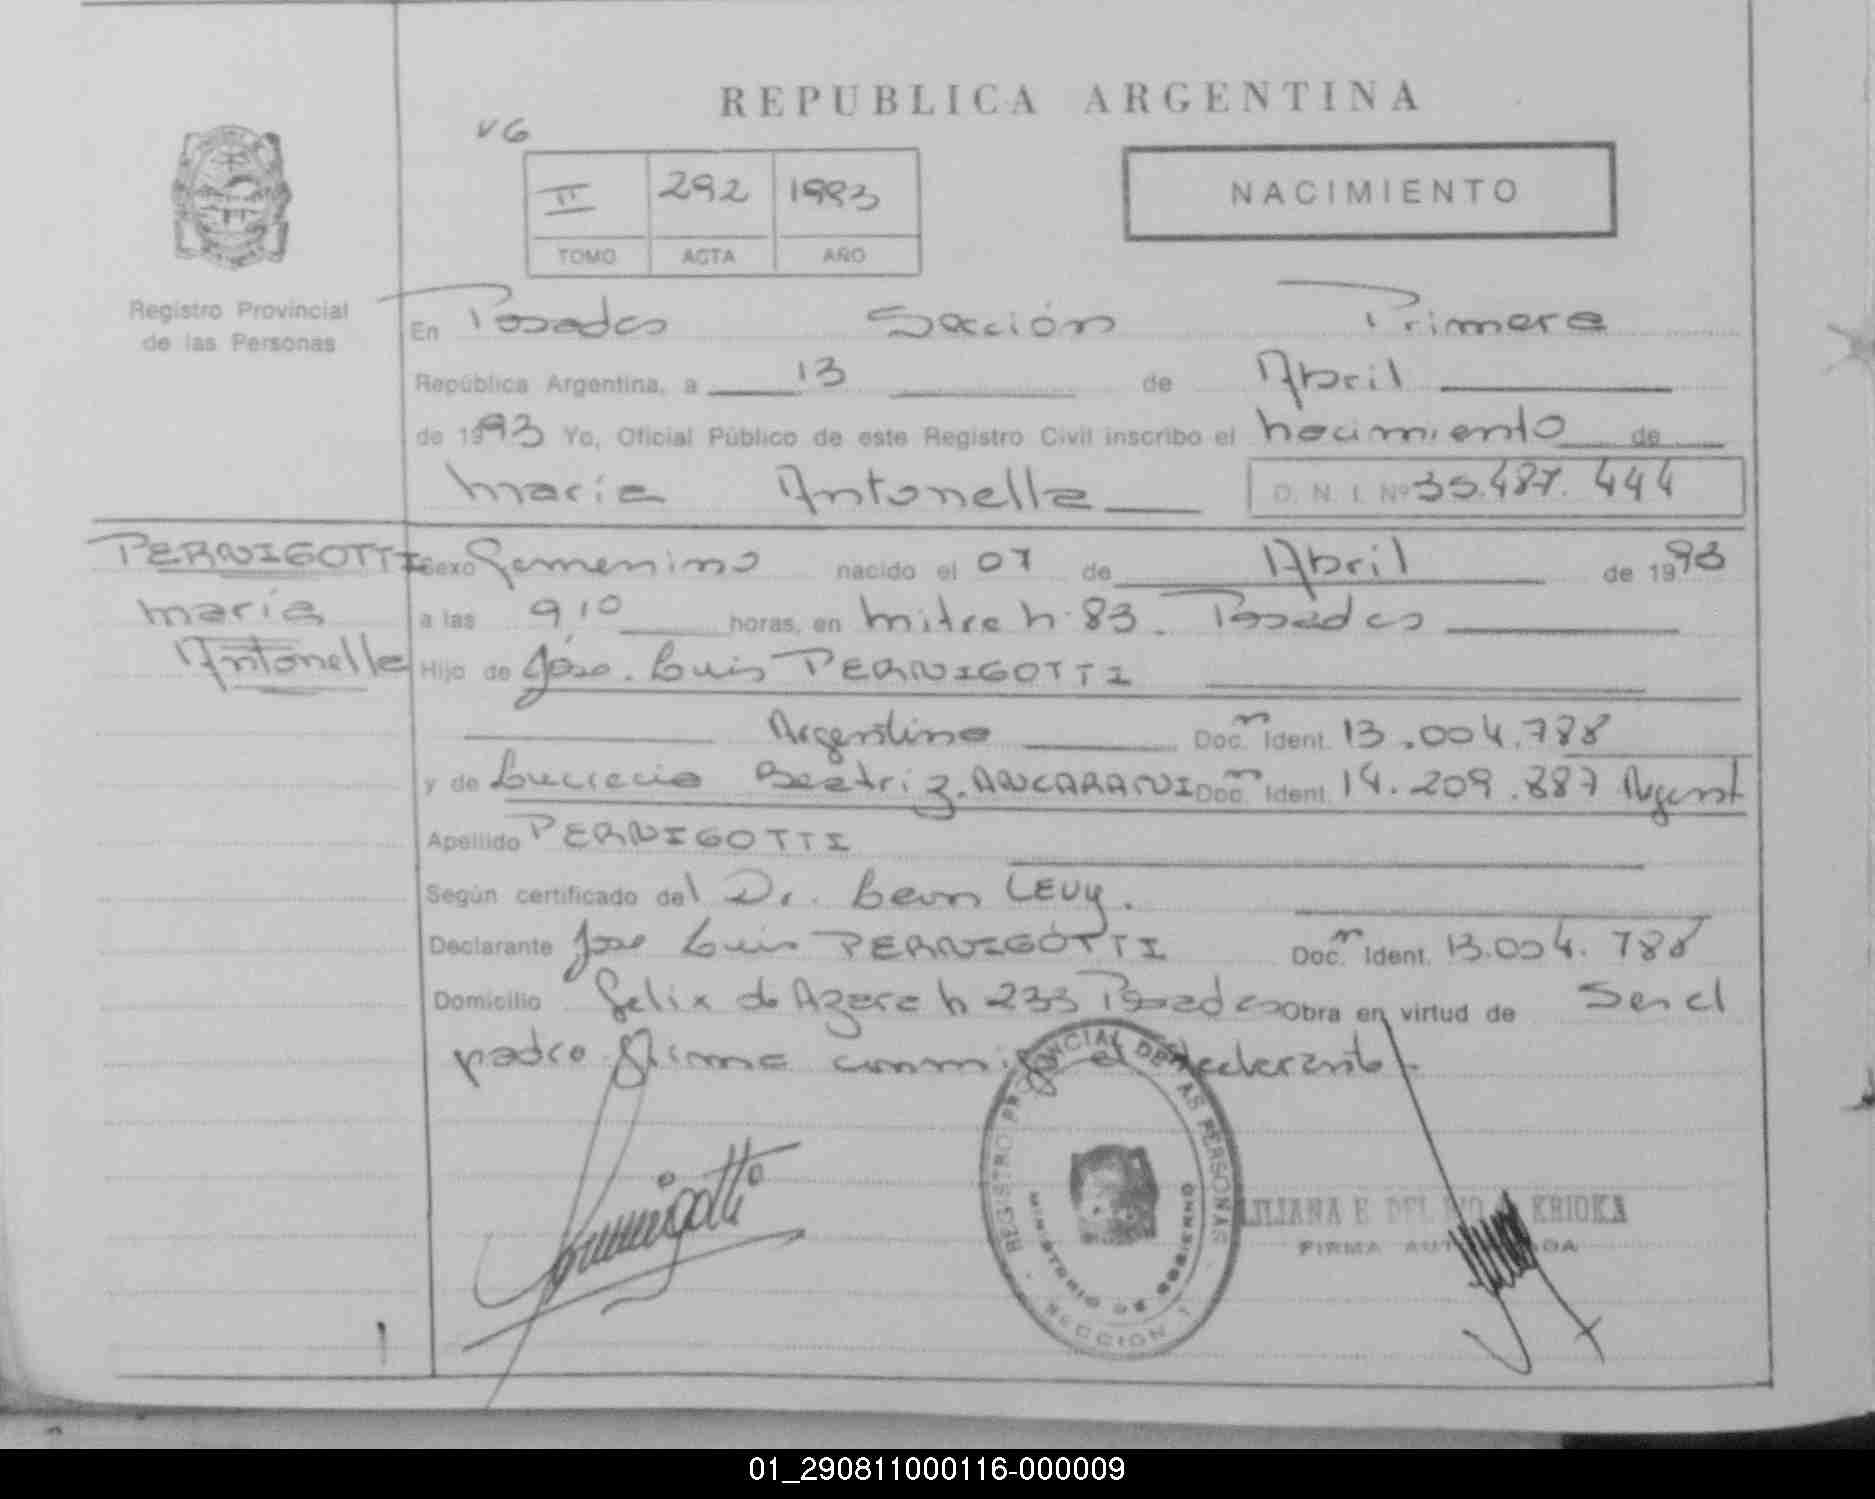 REPUBLICA ARGENTINA
V6
II 292 1993
TOMO ACTA AÑO
NACIMIENTO
Registro Provincial
de las Personas
En Posadas Sección Primera
República Argentina, a 13 de Abril
de 1993 Yo, Oficial Público de este Registro Civil inscribo el nacimiento de
María Antonella D. N. I. Nº 35.487.444
PERNIGOTTI
María
Antonella
Sexo Femenino nacido el 07 de Abril de 1993
a las 9,10 horas, en Mitre n. 83. Posadas
Hijo de José Luis PERNIGOTTI
Argentino Doc. Ident. 13.004.788
y de Lucrecia Beatriz ANCARANI Doc. Ident. 14.209.887 Argent
Apellido PERNIGOTTI
Según certificado del Dr. Leon LEVY.
Declarante Jose Luis PERNIGOTTI Doc. Ident. 13.004.788
Domicilio Felix de Azara n 233 Posadas Obra en virtud de Ser el
padre. Firma conmigo el declarante.
REGISTRO PROVINCIAL DE LAS PERSONAS
MINISTERIO DE GOBIERNO
SECCION 1
LILIANA E. DEL KRIOKA
FIRMA AUTORIZADA
01_290811000116-000009